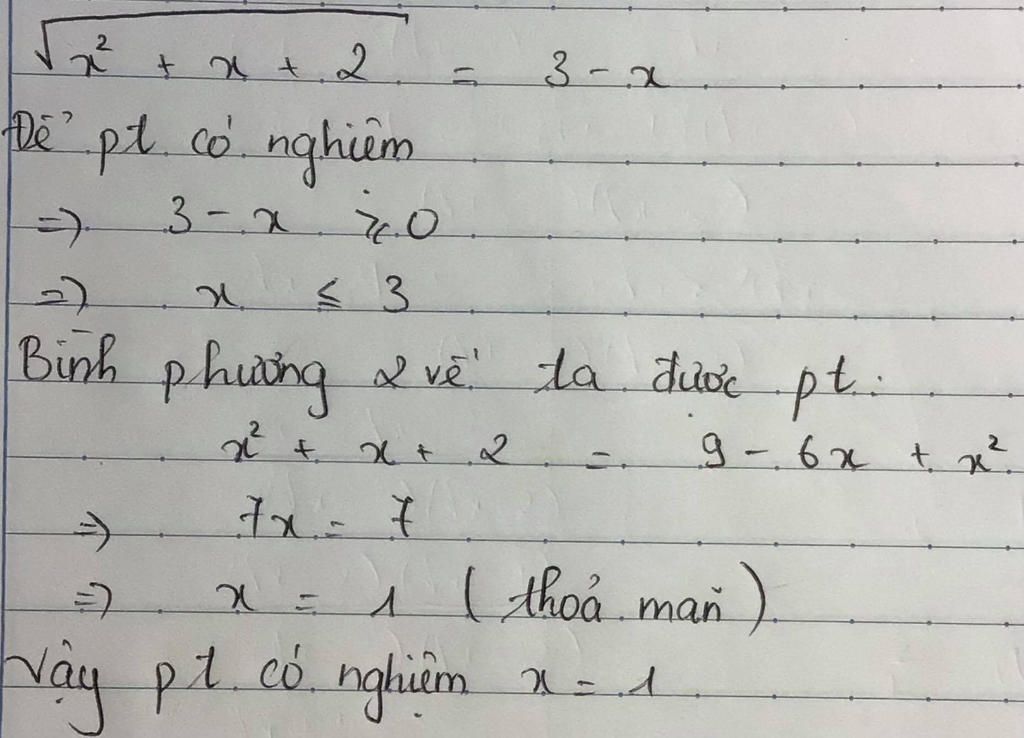 √(x² + x + 2) = 3 - x
Để pt có nghiệm
=> 3 - x ≥ 0
=> x ≤ 3
Bình phương 2 vế ta được pt:
x² + x + 2 = 9 - 6x + x²
=> 7x = 7
=> x = 1 (thoả mãn)
Vậy pt có nghiệm x = 1